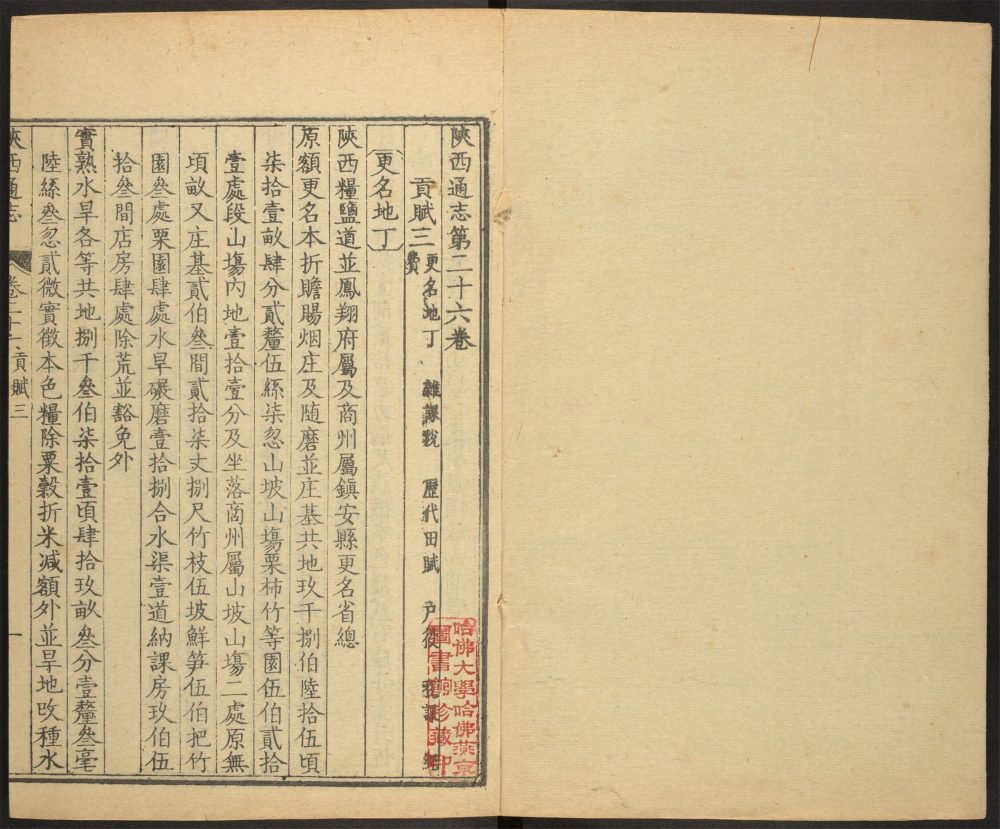 陝西通志第二十六卷
貢賦三 更名地丁 雜課稅 歷代田賦 戸役 稅課 經
費
更名地丁
陝西糧鹽道並鳳翔府屬及商州屬鎮安縣更名省總
原額更名本折贍賜烟庄及随磨並庄基共地玖千捌伯陸拾伍頃
柒拾壹畝肆分貳釐伍絲柒忽山坡山塲栗柿竹等園伍伯貳拾
壹處段山塲內地壹拾壹分及坐落商州屬山坡山塲二處原無
頃畝又庄基貳伯叁間貳拾柒丈捌尺竹枝伍坡鮮笋伍伯把竹
園叁處栗園肆處水旱碾磨壹拾捌合水渠壹道納課房玖伯伍
拾叁間店房肆處除荒並豁免外
實熟水旱各等共地捌千叁伯柒拾壹頃肆拾玖畝叁分壹釐叁毫
陸絲叁忽貳微實徵本色糧除粟穀折米減額外並旱地攺種水
陝西通志 卷二十六 貢賦三 一
哈佛大學哈佛燕京
圖書館珍藏印